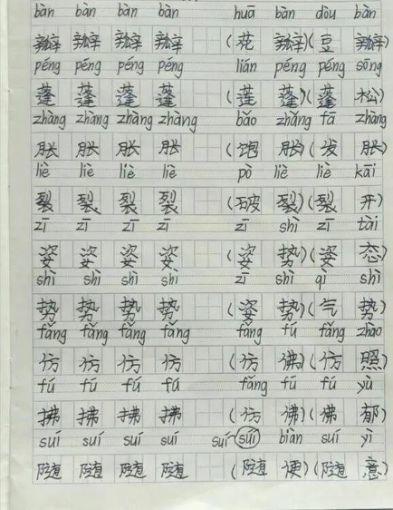 bàn bàn bàn bàn huā bàn dòu bàn
瓣 瓣 瓣 瓣 (花 瓣)(豆 瓣)
péng péng péng péng lián péng péng sōng
蓬 蓬 蓬 蓬 (莲 蓬)(蓬 松)
zhàng zhàng zhàng zhàng bǎo zhàng fā zhàng
胀 胀 胀 胀 (饱 胀)(发 胀)
liè liè liè liè pò liè liè kāi
裂 裂 裂 裂 (破 裂)(裂 开)
zī zī zī zī zī shì zī tài
姿 姿 姿 姿 (姿 势)(姿 态)
shì shì shì shì zī shì qì shì
势 势 势 势 (姿 势)(气 势)
fǎng fǎng fǎng fǎng fǎng fú fǎng zhào
仿 仿 仿 仿 (仿 佛)(仿 照)
fú fú fú fú fǎng fú fú yù
拂 拂 拂 拂 (仿 佛)(佛 郁)
suí suí suí suí suí suí biàn suí yì
随 随 随 随 (随 便)(随 意)